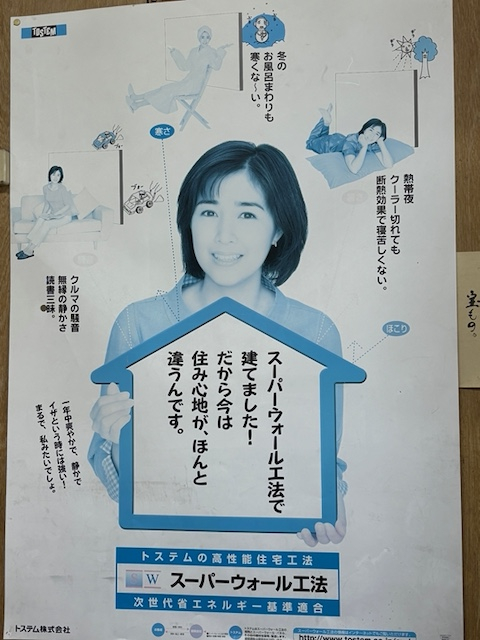 TOSTEM
冬の
お風呂まわりも
寒くな〜い。
寒さ
熱帯夜
クーラー切れても
断熱効果で寝苦しくない。
ブォー
ブォー
クルマの騒音
無縁の静かさ
読書三昧。
ほこり
宝もの。
スーパーウォール工法で
建てました！
だから今は
住み心地が、ほんと
違うんです。
一年中爽やかで、静かで
イザという時には強い！
まるで、私みたいでしょ。
トステムの高性能住宅工法
SW スーパーウォール工法
次世代省エネルギー基準適合
トステム株式会社
スーパーウォール工法の情報はインターネットでもご覧いただけます。